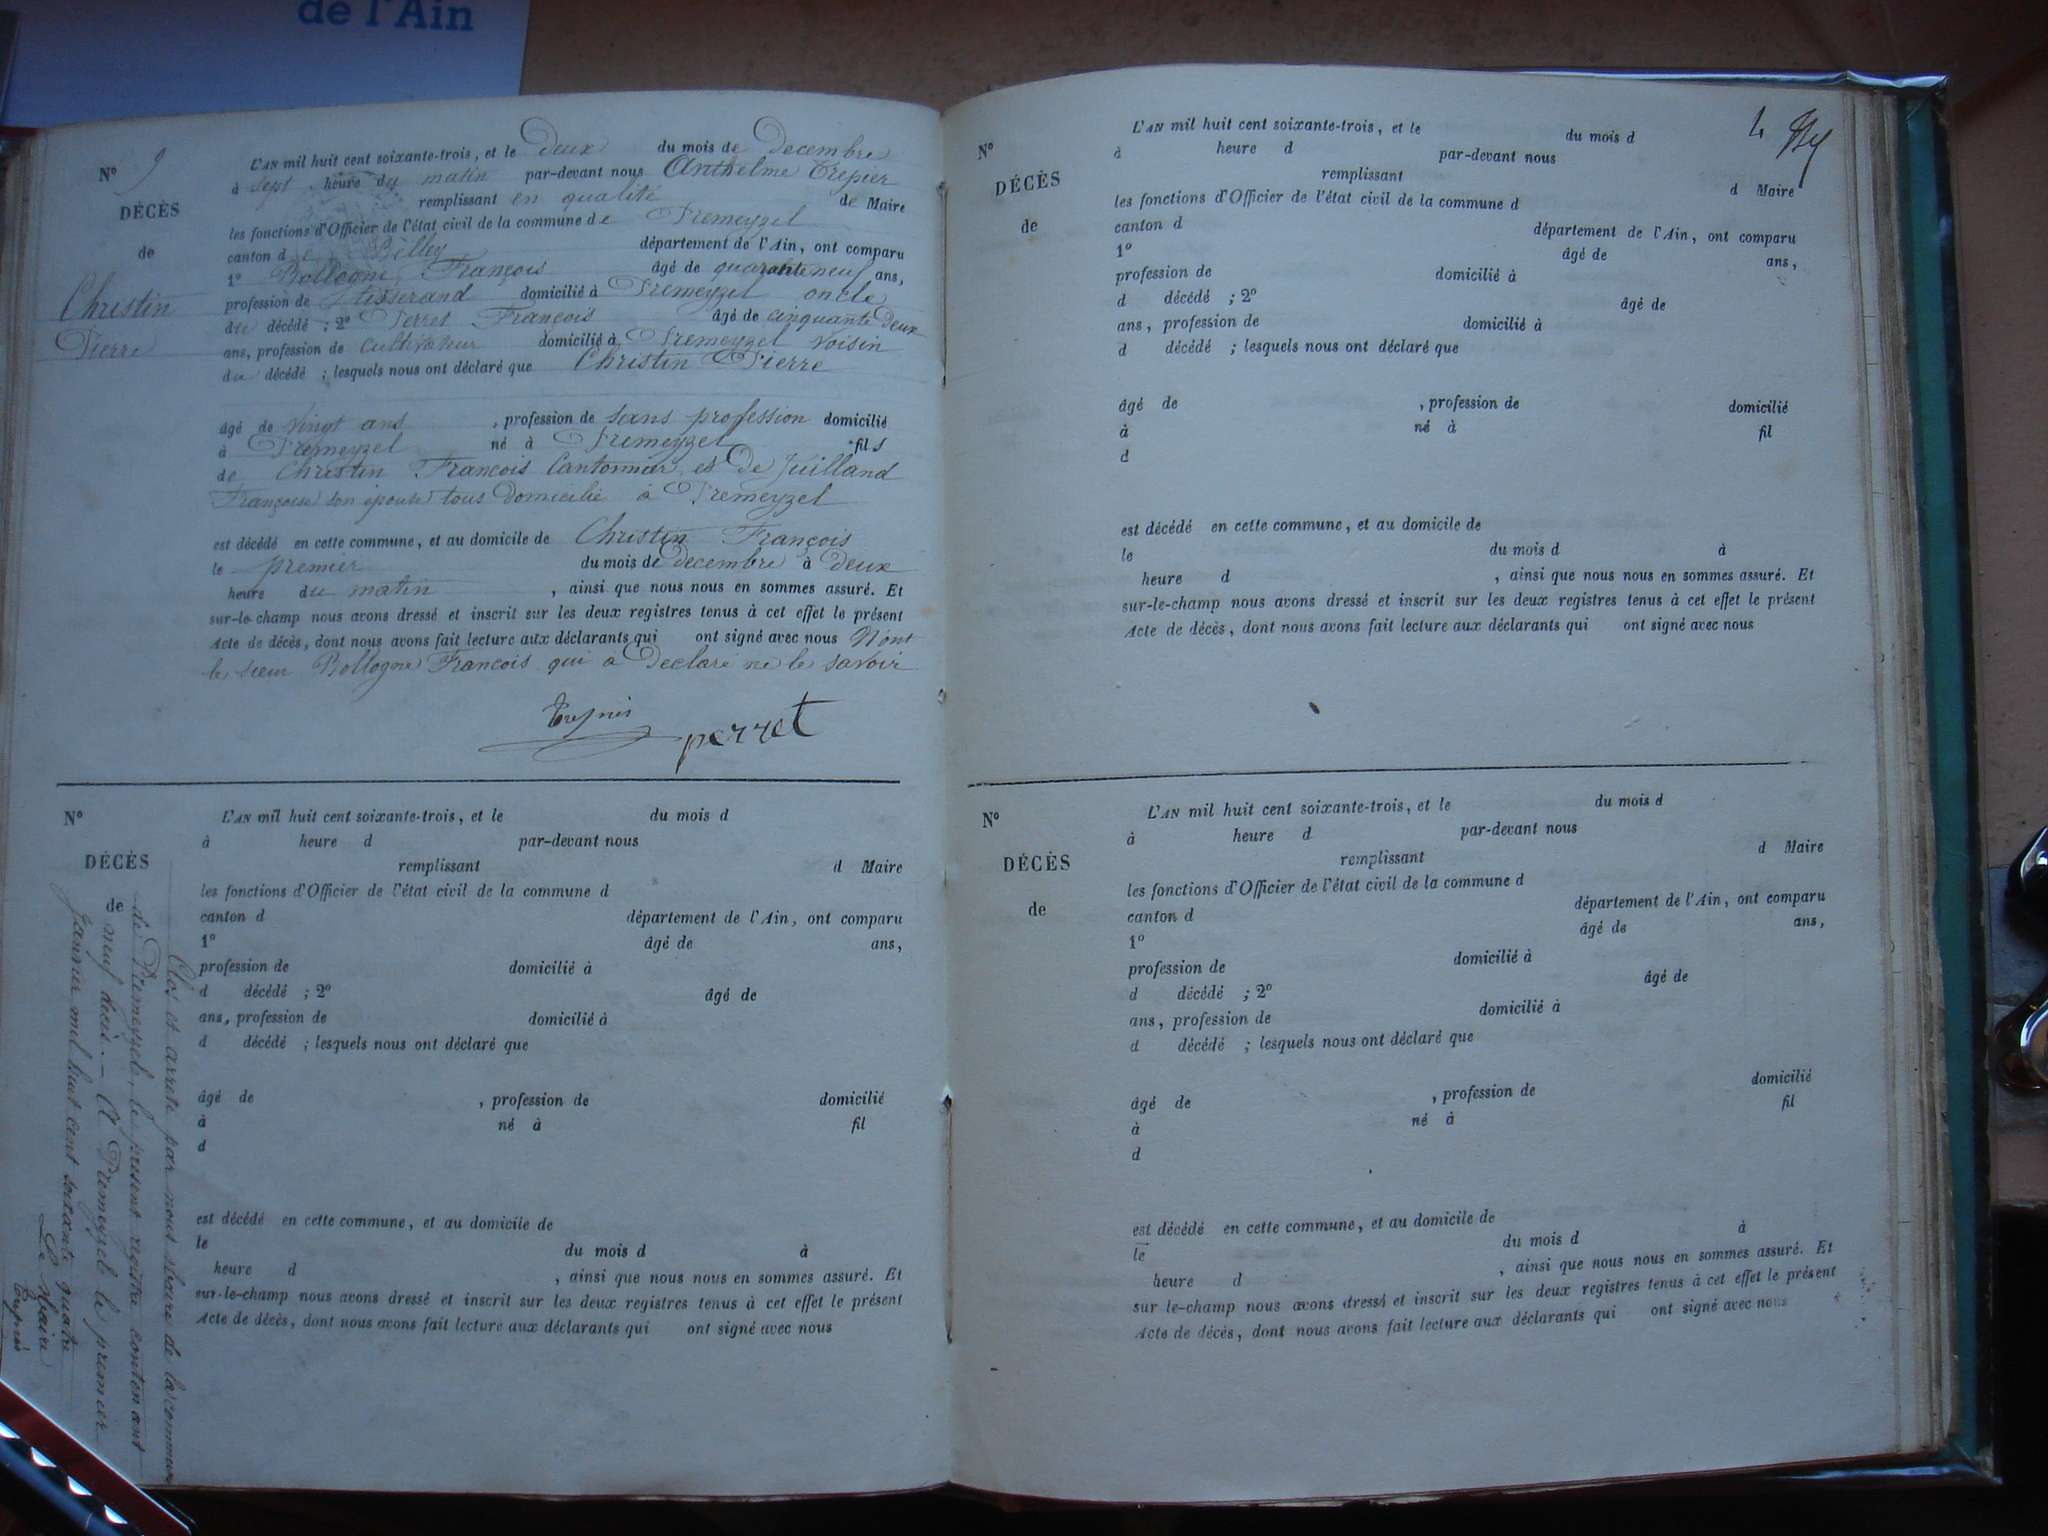 de l'Ain
N° 9
DÉCÈS
de
Christin
Pierre
L'AN mil huit cent soixante-trois, et le Deux du mois de Decembre
à sept heure du matin par-devant nous Anthelme Trepier
remplissant en qualité de Maire
les fonctions d'Officier de l'état civil de la commune de Premeyzel
canton de Belley département de l'Ain, ont comparu
1° Bollogne François âgé de quarante neuf ans,
profession de tisserand domicilié à Premeyzel oncle
du décédé ; 2° Perret François âgé de cinquante deux
ans, profession de cultivateur domicilié à Premeyzel voisin
du décédé ; lesquels nous ont déclaré que Christin Pierre
âgé de vingt ans , profession de sans profession domicilié
à Premeyzel né à Premeyzel fils
de Christin François Cantonnier et De Juilland
Françoise son épouse tous Domicilié à Premeyzel
est décédé en cette commune, et au domicile de Christin François
le premier du mois de Decembre à Deux
heure du matin , ainsi que nous nous en sommes assuré. Et
sur-le-champ nous avons dressé et inscrit sur les deux registres tenus à cet effet le présent
Acte de décès, dont nous avons fait lecture aux déclarants qui ont signé avec nous Non
le sieur Bollogne François qui a Declaré ne le savoir
Trepier perret
N°
DÉCÈS
de
L'AN mil huit cent soixante-trois, et le du mois d
à heure d par-devant nous
remplissant d Maire
les fonctions d'Officier de l'état civil de la commune d
canton d département de l'Ain, ont comparu
1° âgé de ans,
profession de domicilié à
d décédé ; 2° âgé de
ans, profession de domicilié à
d décédé ; lesquels nous ont déclaré que
âgé de , profession de domicilié
à né à fil
d
est décédé en cette commune, et au domicile de
le du mois d à
heure d , ainsi que nous nous en sommes assuré. Et
sur-le-champ nous avons dressé et inscrit sur les deux registres tenus à cet effet le présent
Acte de décès, dont nous avons fait lecture aux déclarants qui ont signé avec nous
Clos et arrêté par nous Maire de la commune
de Premeyzel, le present registre contenant
neuf décès. - A Premeyzel le premier
janvier mil huit cent soixante quatre
Le Maire
Trepier
4
N°
DÉCÈS
de
L'AN mil huit cent soixante-trois, et le du mois d
à heure d par-devant nous
remplissant d Maire
les fonctions d'Officier de l'état civil de la commune d
canton d département de l'Ain, ont comparu
1° âgé de ans,
profession de domicilié à
d décédé ; 2° âgé de
ans, profession de domicilié à
d décédé ; lesquels nous ont déclaré que
âgé de , profession de domicilié
à né à fil
d
est décédé en cette commune, et au domicile de
le du mois d à
heure d , ainsi que nous nous en sommes assuré. Et
sur-le-champ nous avons dressé et inscrit sur les deux registres tenus à cet effet le présent
Acte de décès, dont nous avons fait lecture aux déclarants qui ont signé avec nous
N°
DÉCÈS
de
L'AN mil huit cent soixante-trois, et le du mois d
à heure d par-devant nous
remplissant d Maire
les fonctions d'Officier de l'état civil de la commune d
canton d département de l'Ain, ont comparu
1° âgé de ans,
profession de domicilié à
d décédé ; 2° âgé de
ans, profession de domicilié à
d décédé ; lesquels nous ont déclaré que
âgé de , profession de domicilié
à né à fil
d
est décédé en cette commune, et au domicile de
le du mois d à
heure d , ainsi que nous nous en sommes assuré. Et
sur le-champ nous avons dressé et inscrit sur les deux registres tenus à cet effet le présent
Acte de décès, dont nous avons fait lecture aux déclarants qui ont signé avec nous